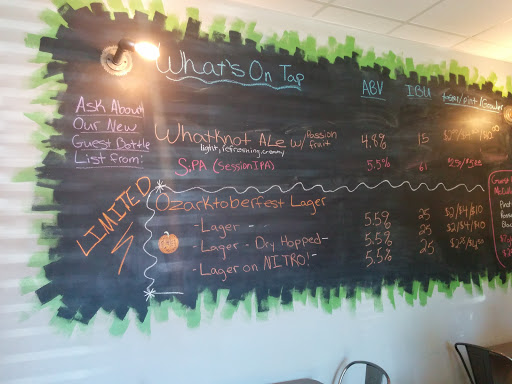 What's On Tap
ABV IBU taster/pint/Growler
Ask About
Our New
Guest Bottle
List from:
WhatKnot Ale w/ Passion fruit 4.8% 15
light, refreshing, creamy
S.PA (Session IPA) 5.5% 61
LIMITED
Ozarktoberfest Lager
-Lager - - 5.5% 25 $2/$4/$10
-Lager - Dry Hopped- 5.5% 25 $2/$4/$10
-Lager on NITRO!- 5.5% 25